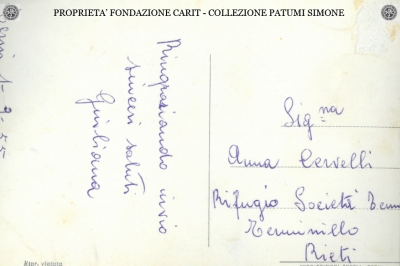 PROPRIETA' FONDAZIONE CARIT - COLLEZIONE PATUMI SIMONE
1-9-55
Ringraziando invio
sinceri saluti
Giuliana
Sig.na
Anna Cervelli
Rifugio Società
Terminillo
Rieti
Ripr. vietata